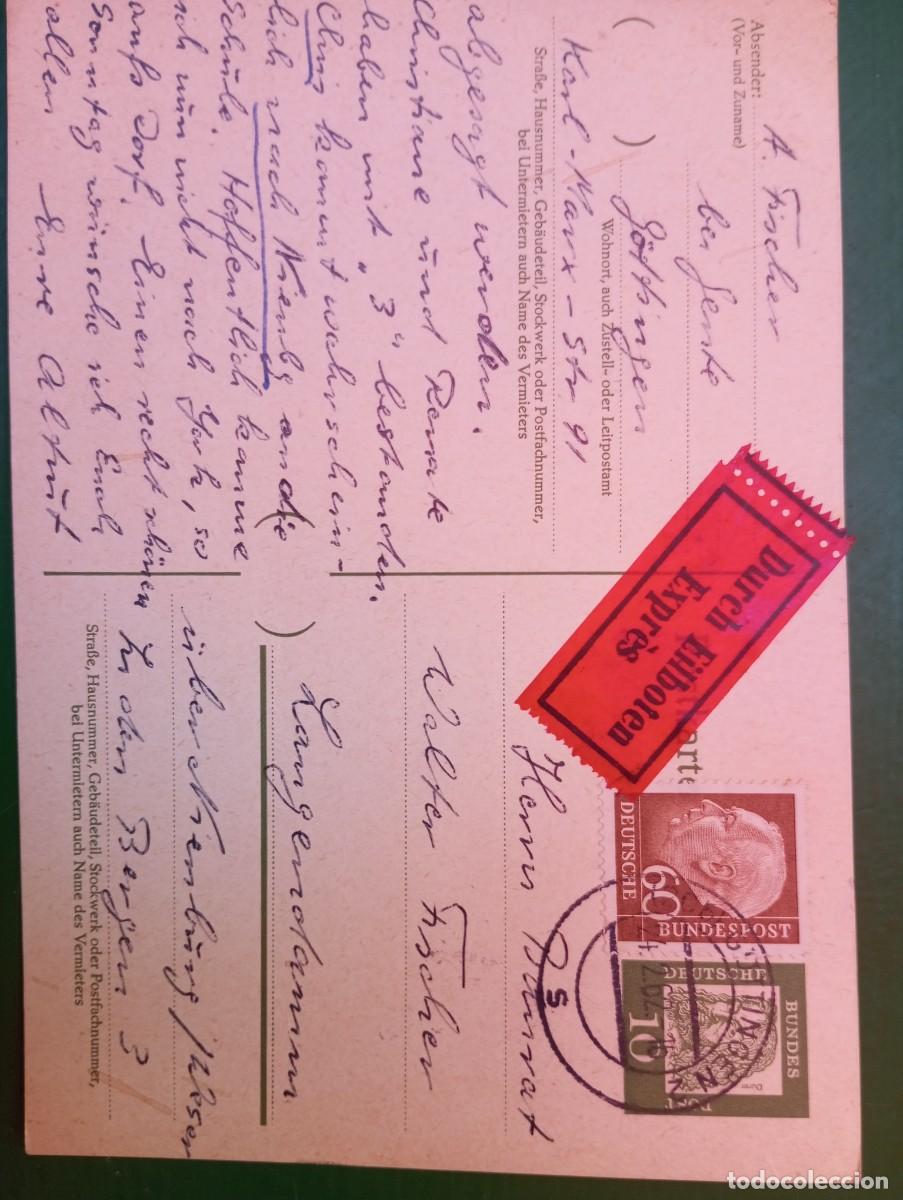 Absender:
(Vor- und Zuname)
A. Fischer
bei Gente
( ) Göttingen
Wohnort, auch Zustell- oder Leitpostamt
Karl-Marx-Str. 91
Straße, Hausnummer, Gebäudeteil, Stockwerk oder Postfachnummer,
bei Untermietern auch Name des Vermieters
abgesagt werden.
Christiane und Renate
haben mit „3" bestanden.
Chris kommt wahrschein-
lich nach Niembg an die
Schule. Hoffentlich kanne
ich nun nicht noch York, so
aufs Dorf. Einen recht schönen
Sonntag wünsche ich Euch
allen Eure Almut
Durch Eilboten
Exprès
DEUTSCHE
60
BUNDESPOST
DEUTSCHE
BUNDES
POST
10
Dürer
TINGEN
24.2.62
s
Herrn Baurat
Walter Fischer
( ) Langendamm
über Nienburg/Weser
In den Bergen 3
Straße, Hausnummer, Gebäudeteil, Stockwerk oder Postfachnummer,
bei Untermietern auch Name des Vermieters
todocoleccion.net